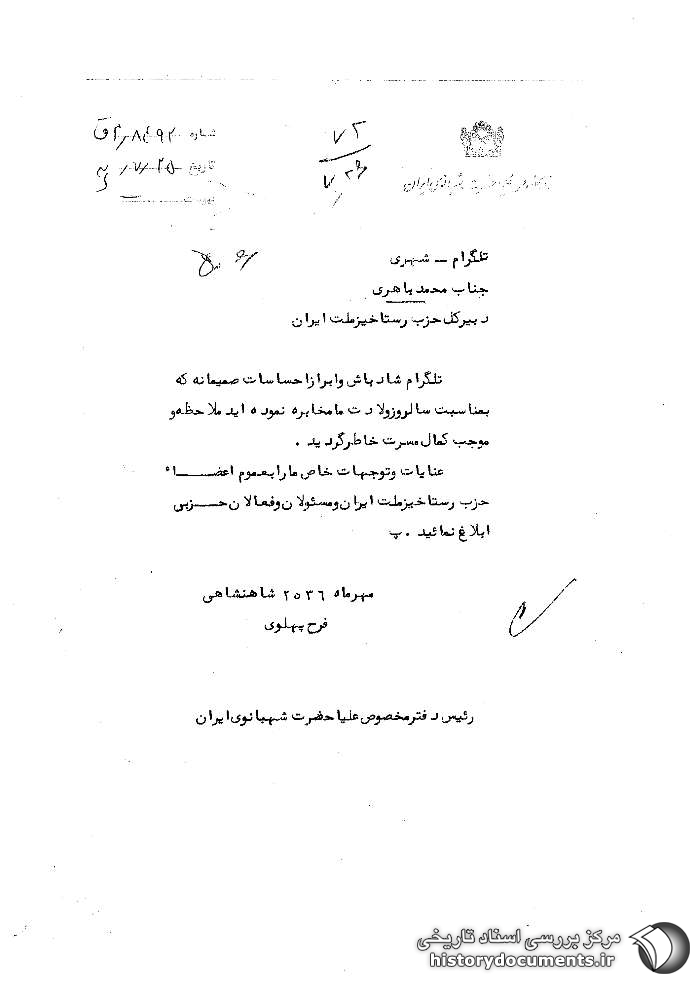 شماره
تاریخ
۷۲
تلگرام ـ شهری
جناب محمد باهری
دبیرکل حزب رستاخیز ملت ایران
تلگرام شادباش و ابراز احساسات صمیمانه که
بمناسبت سالروز ولادت ما مخابره نموده اید ملاحظه و
موجب کمال مسرت خاطر گردید .
عنایات و توجهات خاص ما را بعموم اعضـــــاء
حزب رستاخیز ملت ایران و مسئولان و فعالان حـــزبی
ابلاغ نمائید . پ
مهرماه ۲۵۳۶ شاهنشاهی
فرح پهلوی
رئیس دفتر مخصوص علیاحضرت شهبانوی ایران
مرکز بررسی اسناد تاریخی
historydocuments.ir